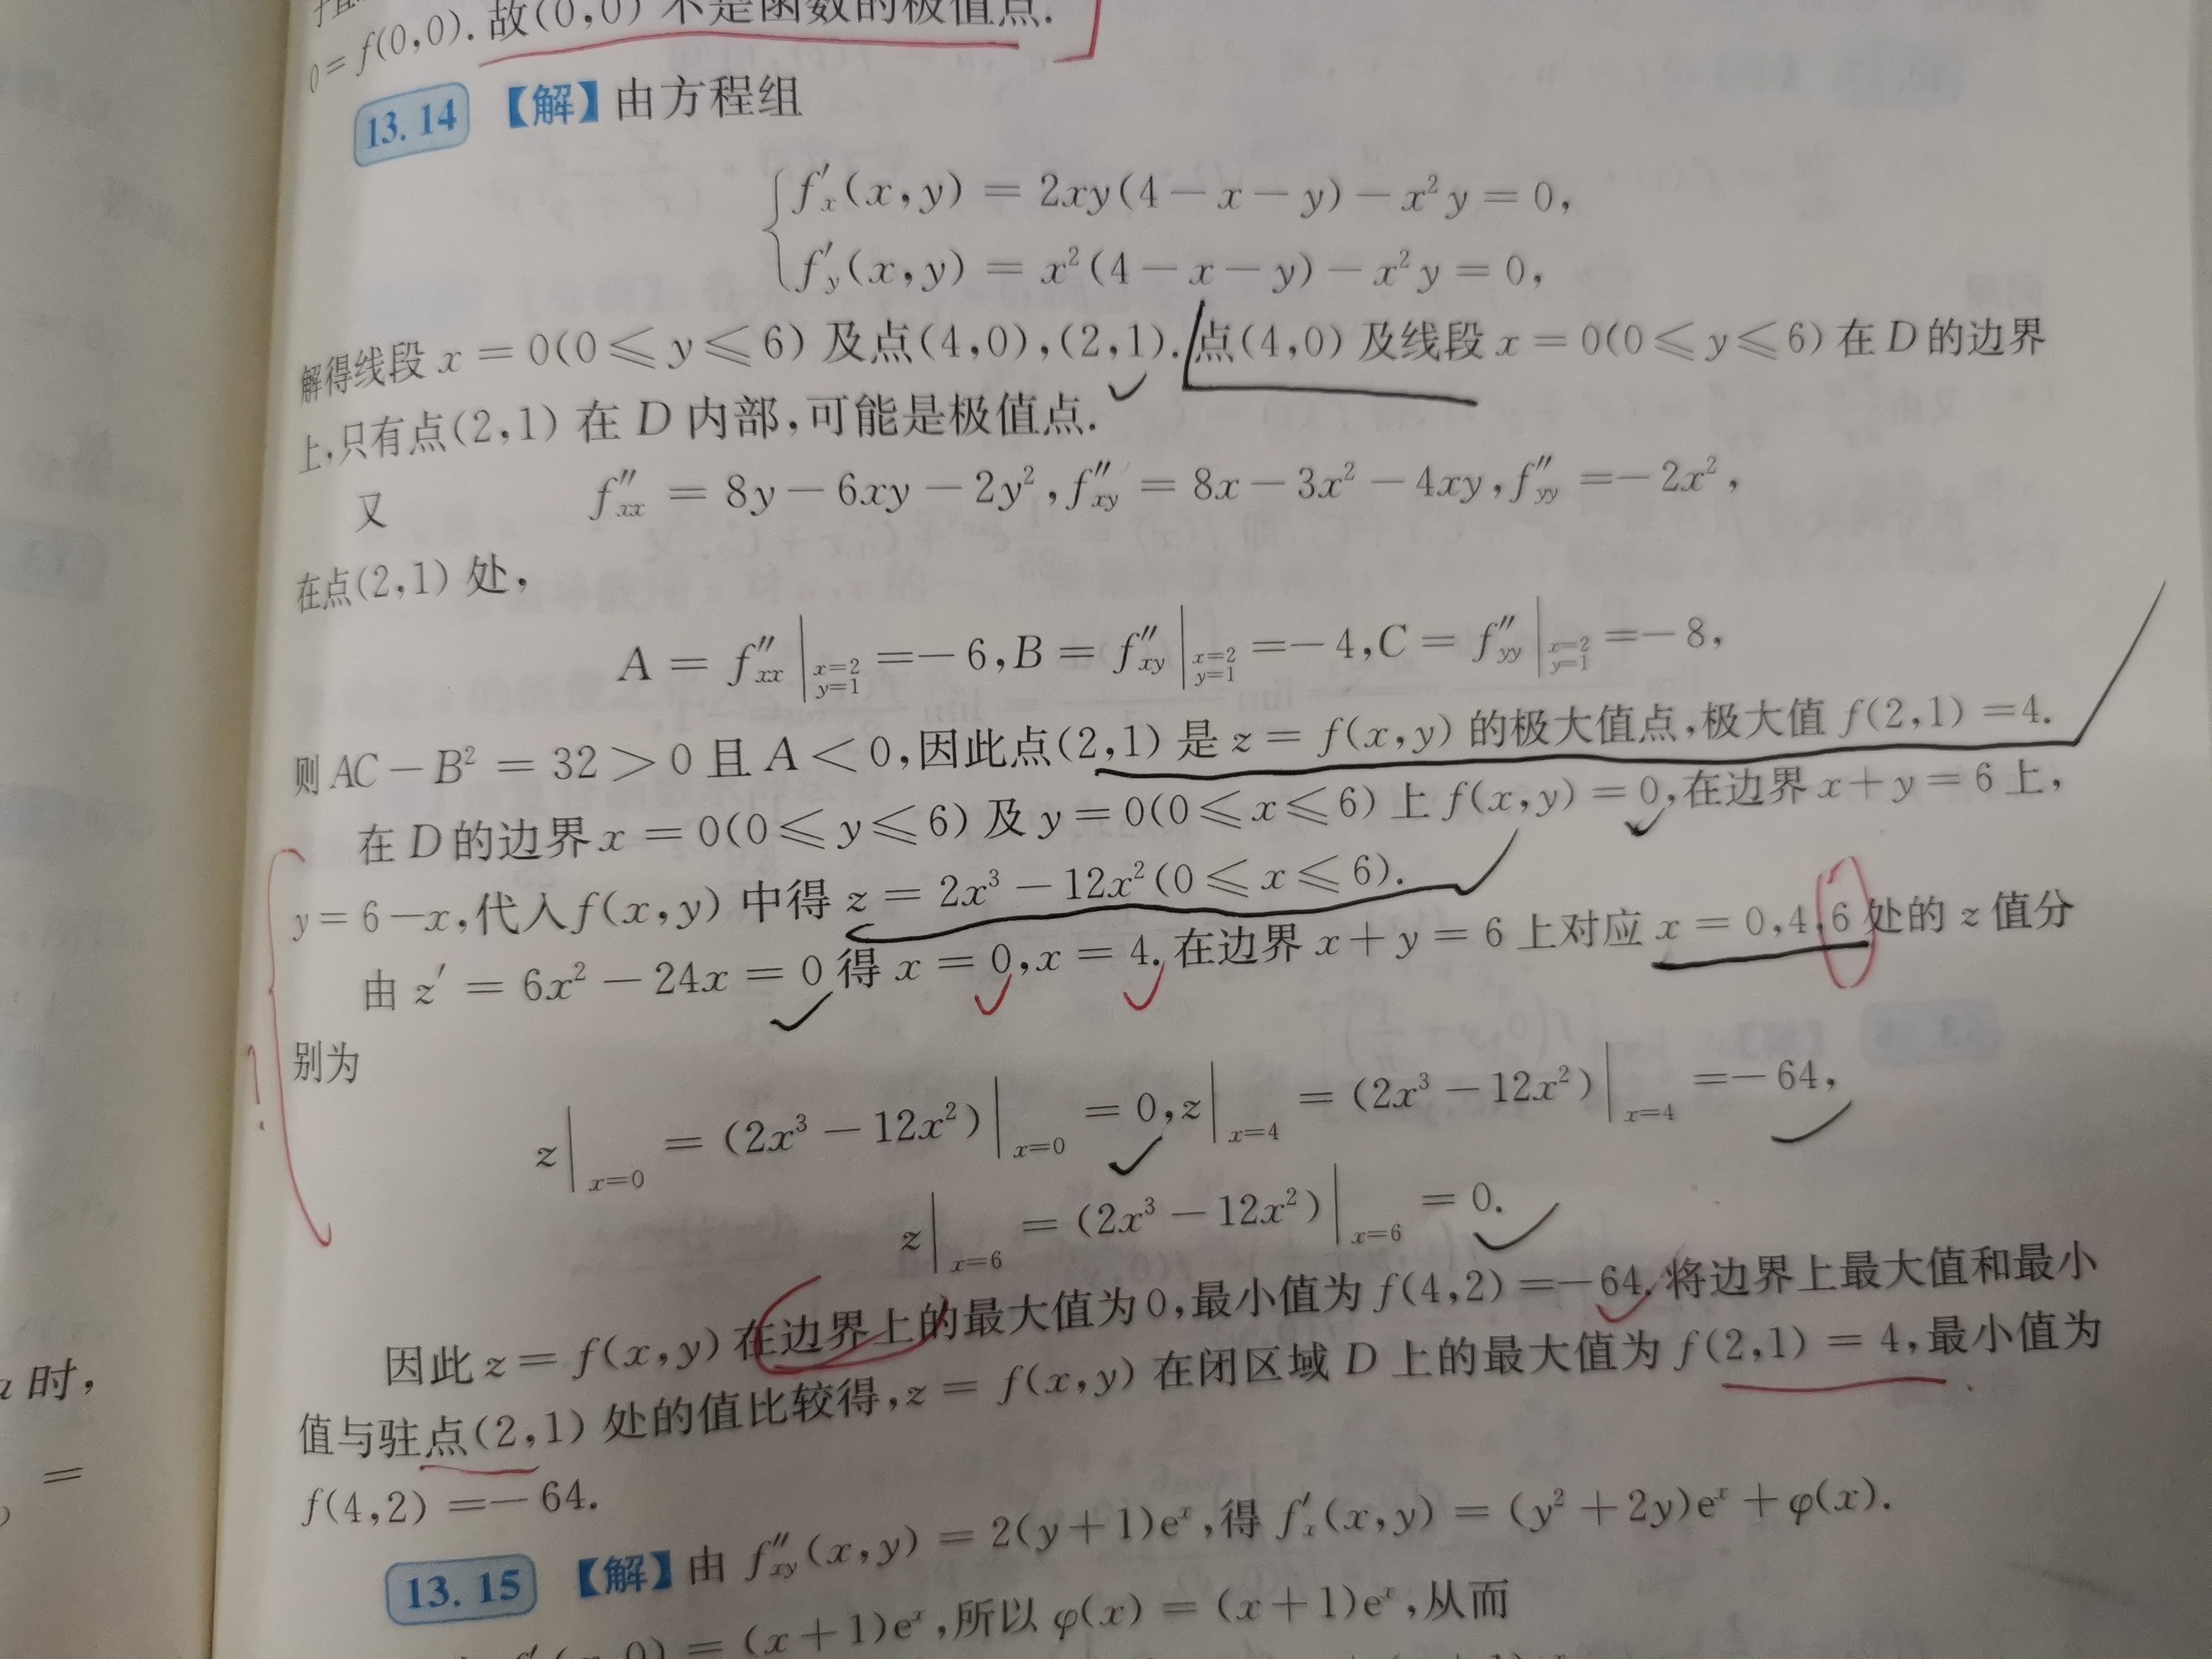 0=f(0,0). 故(0,0) 不是函数的极值点.
13.14 【解】由方程组
f′ₓ(x,y) = 2xy(4-x-y)-x²y=0,
f′_y(x,y) = x²(4-x-y)-x²y=0,
解得线段 x=0(0≤y≤6) 及点(4,0),(2,1). 点(4,0) 及线段 x=0(0≤y≤6) 在 D 的边界
上,只有点(2,1) 在 D 内部,可能是极值点.
又 f″ₓₓ = 8y-6xy-2y², f″_xy = 8x-3x²-4xy, f″_yy =-2x²,
在点(2,1) 处,
A = f″ₓₓ|x=2 y=1 =-6, B = f″_xy|x=2 y=1 =-4, C = f″_yy|x=2 y=1 =-8,
则 AC-B² = 32>0 且 A<0,因此点(2,1) 是 z=f(x,y) 的极大值点,极大值 f(2,1)=4.
在 D 的边界 x=0(0≤y≤6) 及 y=0(0≤x≤6) 上 f(x,y)=0,在边界 x+y=6 上,
y=6-x,代入 f(x,y) 中得 z=2x³-12x²(0≤x≤6).
由 z′ = 6x²-24x=0 得 x=0,x=4. 在边界 x+y=6 上对应 x=0,4,6 处的 z 值分
别为
z|x=0 = (2x³-12x²)|x=0 = 0, z|x=4 = (2x³-12x²)|x=4 =-64,
z|x=6 = (2x³-12x²)|x=6 = 0.
因此 z=f(x,y) 在边界上的最大值为0,最小值为 f(4,2)=-64. 将边界上最大值和最小
值与驻点(2,1) 处的值比较得,z=f(x,y) 在闭区域 D 上的最大值为 f(2,1)=4,最小值为
f(4,2)=-64.
13.15 【解】由 f″_xy(x,y) = 2(y+1)eˣ,得 f′ₓ(x,y) = (y²+2y)eˣ+φ(x).
= (x+1)eˣ,所以 φ(x) = (x+1)eˣ,从而
时,
=